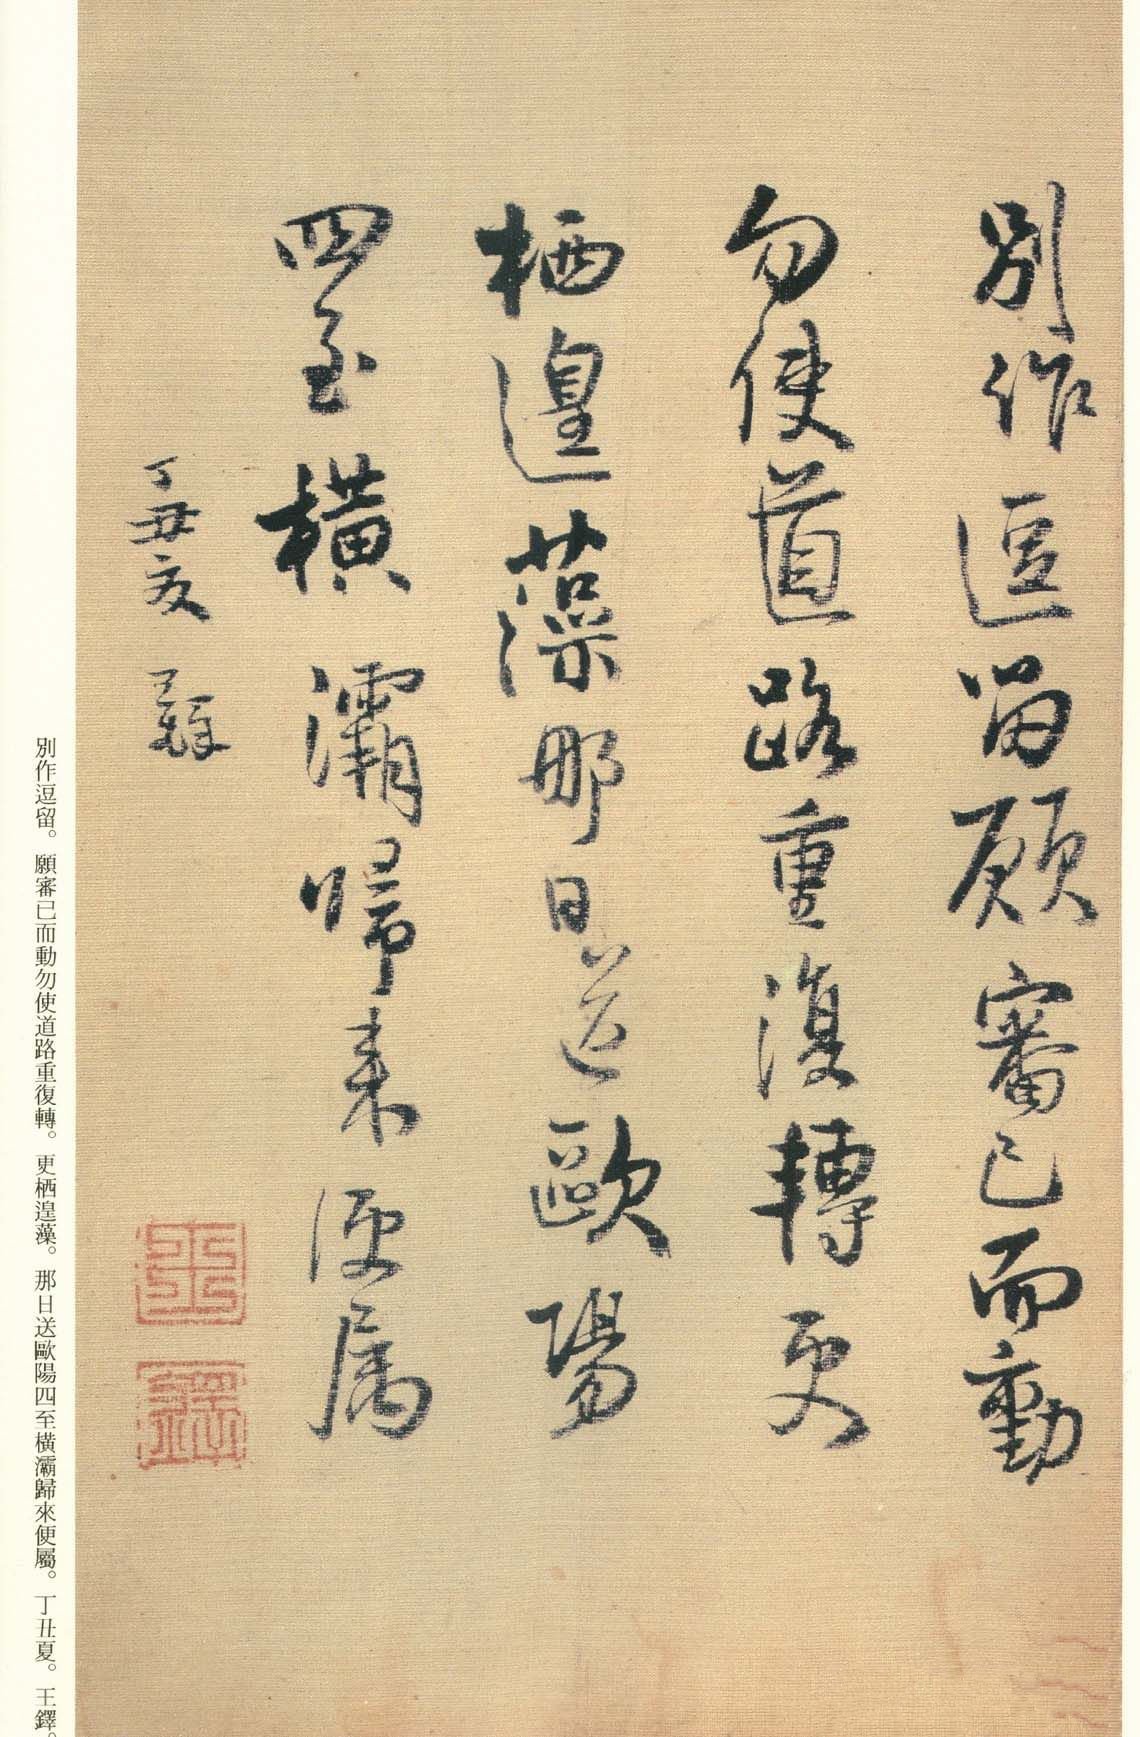 別作逗留願審已而動
勿使道路重復轉更
栖遑藻那日送歐陽
四至橫灞歸来便属
丁丑夏 王鐸
王
鐸
別作逗留。願審已而動勿使道路重復轉。更栖遑藻。那日送歐陽四至橫灞歸來便屬。丁丑夏。王鐸。